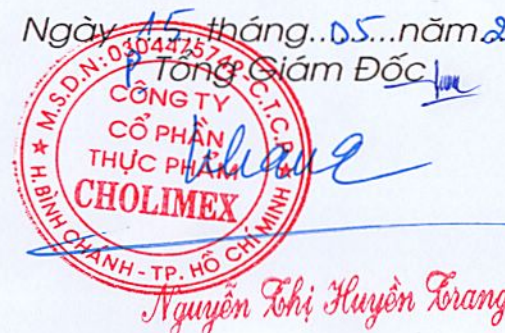 Ngày 15 tháng..05...năm 2
P Tổng Giám Đốc
M.S.D.N: C.T.C.P
CÔNG TY
CỔ PHẦN
THỰC PHẨM
CHOLIMEX
H. BÌNH CHÁNH - TP. HỒ CHÍ MINH
Nguyễn Thị Huyền Trang